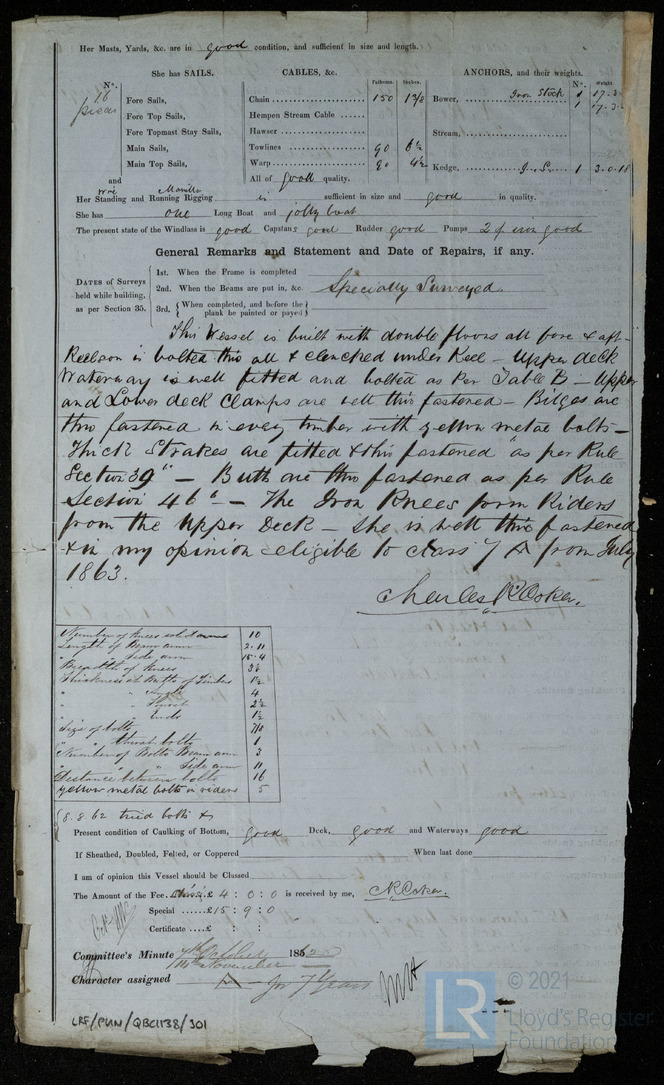 Her Masts, Yards, &c. are in good condition, and sufficient in size and length.
She has SAILS.
CABLES, &c.
Fathoms.
Inches.
ANCHORS, and their weights.
Nos.
Weight.
Nº.
16 pieces
Fore Sails,
Fore Top Sails,
Fore Topmast Stay Sails,
Main Sails,
Main Top Sails,
and
Chain 150 1 3/8
Hempen Stream Cable
Hawser
Towlines 90 6½
Warp 90 4½
All of good quality.
Bower, Iron Stock 1 17-3-
1 17-3-
Stream,
Kedge, 1 3-0-18
wire Manilla
Her Standing and Running Rigging is sufficient in size and good in quality.
She has one Long Boat and jolly boat
The present state of the Windlass is good Capstan good Rudder good Pumps 2 of iron good
General Remarks and Statement and Date of Repairs, if any.
DATES of Surveys held while building, as per Section 35.
1st. When the Frame is completed
2nd. When the Beams are put in, &c.
3rd. When completed, and before the plank be painted or payed
Specially Surveyed.
This Vessel is built with double floors all fore & aft-
Keelson is bolted thro all & clenched under Keel - Upper deck
Waterway is well fitted and bolted as Per Table B - Upper
and Lower deck Clamps are well thro fastened - Bilges are
thro fastened in every timber with yellow metal bolts -
Thick Strakes are fitted & thro fastened "as per Rule
Section 39" - Butts are thro fastened as per Rule
Section 46" - The Iron Knees form Riders
from the Upper Deck - She is well thro fastened
& in my opinion eligible to class 7 A from July
1863.
Charles R Coker.
Number of Knees 10
Length of Beam arm 2.11
" Side arm 15.4
Breadth of Knees 3½
Thickness at Butts of Timbers 1½
" " 4
" Throat 2½
" Ends 1½
Size of bolts 7/10
" " throat bolts 1
Number of Bolts Beam arm 3
" " Side arm 11
Distance between bolts 16
yellow metal bolts in riders 5
8.8.62 tried bolts &
Present condition of Caulking of Bottom, good Deck, good and Waterways good
If Sheathed, Doubled, Felted, or Coppered When last done
I am of opinion this Vessel should be Classed
The Amount of the Fee £ 4 : 0 : 0 is received by me, C R Coker.
Special £15 : 9 : 0
Certificate £ : :
Committee's Minute 7th October 186
14th November
Character assigned A for 7 Years
LRF/PUN/QBC1138/301
© 2021
LR
Lloyd's Register
Foundation